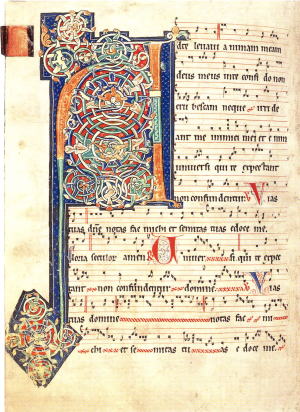 dte levavi animam meam
deus meus in te confido non
erubescam neque irride
ant me inimici mei et enim
universi qui te expectant
non confundentur. Vias
tuas dñe notas fac michi et semitas tuas edoce me.
loria seclor amen Univer si qui te expec
tant non confundentur domine. Vias
tuas domine notas fac mi
chi et se mitas tu as e doce me.